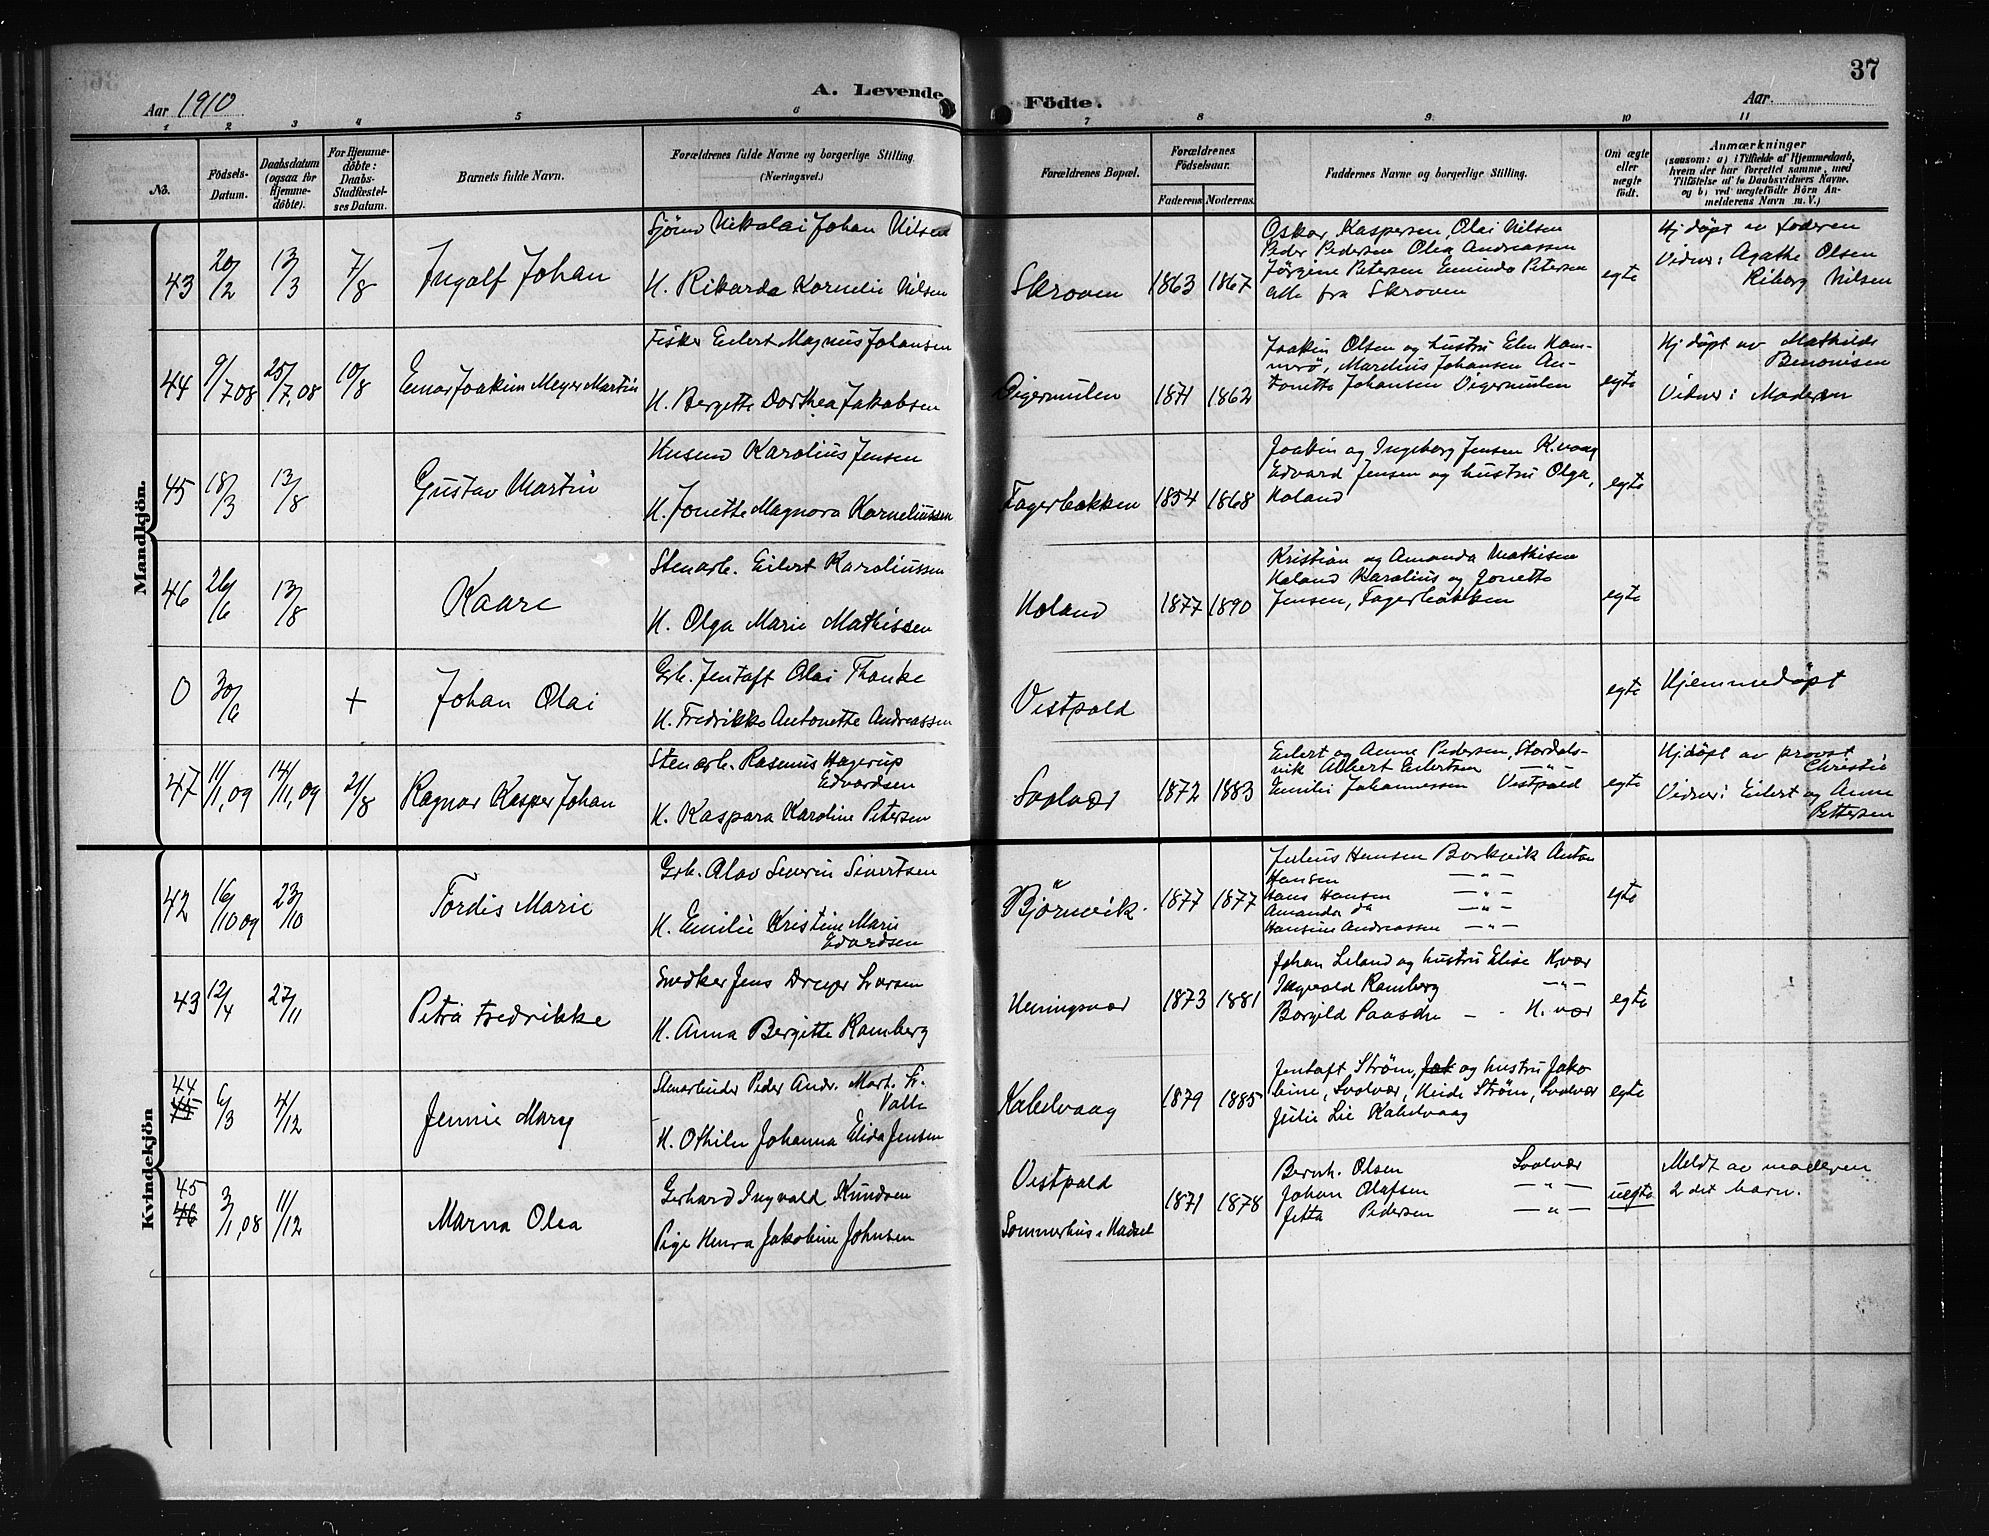 Aar 1910
A. Levende
Födte.
Aar.
37
1 2 3 4 5 6 7 8 9 10 11
No.
Födsels-
Datum.
Daabsdatum
(ogsaa for
Hjemme-
döbte).
For Hjemme-
döbte:
Daabs-
Stadfæstel-
ses Datum.
Barnets fulde Navn.
Forældrenes fulde Navne og borgerlige Stilling.
(Næringsvei.)
Forældrenes Bopæl.
Forældrenes
Födselsaar.
Faderens
Moderens.
Faddernes Navne og borgerlige Stilling.
Om ægte
eller
uægte
födt.
Anmærkninger
(saasom: a) i Tilfælde af Hjemmedaab,
hvem der har forrettet samme, med
Tilföielse af to Daabsvidners Navne,
og b) ved uægtefödte Börn An-
melderens Navn m. V.)
Mandkjön.
43
20/2
13/3
7/8
Ingolf Johan
Nikolai Johan Nilsen
H. Rikarda Kornelie Nilsen
Skroven
1863
1867
Oskar Kaspersen, Olai Nilsen
Peder Pedersen Olea Andreassen
Jörgine Petersen Eminda Petersen
alle fra Skroven
egte
Hjdøpt av faderen
Vidner: Agathe Olsen
Riborg Nilsen
44
9/7 08
25/7, 08
10/8
Einar Joakim Meyer Martin
Fisker Eilert Magnus Johansen
H. Bergitte Dorthea Jakobsen
Digermulen
1871
1862
Joakim Olsen og hustru Elen Ham-
merø, Marelius Johansen An-
tonette Johansen Digermulen
egte
Hjdøpt av Mathilde
Benonisen
Vidner: Moderen
45
18/3
13/8
Gustav Martin
Husmd Karolius Jensen
H. Jonette Magnora Korneliussen
Fagerbakken
1854
1868
Joakim og Ingeborg Jensen K.vaag
Edvard Jensen og hustru Olga,
Holand
egte
46
26/6
13/8
Kaare
Stenarb. Eilert Karoliussen
H. Olga Marie Mathissen
Holand
1877
1890
Kristian og Amanda Mathisen
Holand Karolius og Jonette
Jensen, Fagerbakken
egte
0
30/6
+
Johan Olai
Grb. Jentoft Olai Thonke
H. Fredrikke Antonette Andreassen
Vestpold
egte
Hjemmedøpt
47
11/11, 09
14/11, 09
21/8
Ragnar Kasper Johan
Stenarb. Rasmus Hagerup
Edvardsen
H. Kaspara Karoline Petersen
Svolvær
1872
1883
Eilert og Anne Pedersen, Stordals-
vik Albert Eilertsen — " —
Emilie Johannessen Vestpold
egte
Hjdøpt av provst
Christie
Vidner: Eilert og Anne
Pettersen
Kvindekjön
42
16/10 09
23/10
Tordis Marie
Grb. Olav Severin Sivertsen
H. Emilie Kristine Marie
Edvardsen
Bjørnvik.
1877
1877
Julius Hansen Borkvik Anton
Hansen — " —
Hans Hansen — " —
Amanda da — " —
Hansine Andreassen — " —
egte
43
12/4
27/11
Petra Fredrikke
Snedker Jens Dreyer Larsen
H. Anna Bergitte Ramberg
Henningsvær
1873
1881
Johan Leland og hustru Elise H.vær
Ingvald Ramberg — " —
Borgild Paasche — - H. vær
egte
44
6/3
4/12
Jennie Mary
Stenarbeider Peder Andr. Mart. Sr.
Valle
H. Othilie Johanna Elida Jensen
Kabelvaag
1879
1885
Jentoft Strøm, Jak og hustru Jako-
bine, Svolvær, Heide Strøm, Svolvær
Julie Lie Kabelvaag
egte
45
46
3/1, 08
11/12
Marna Olea
Gerhard Ingvald Knudsen
Pige Henra Jakobine Johnsen
Vestpold
Sommerhus i Hadsel
1871
1878
Bernh. Olsen Svolvær
Johan Olafsen — " —
Jetta Pedersen — " —
uegte
Meldt av moderen
2 det barn.